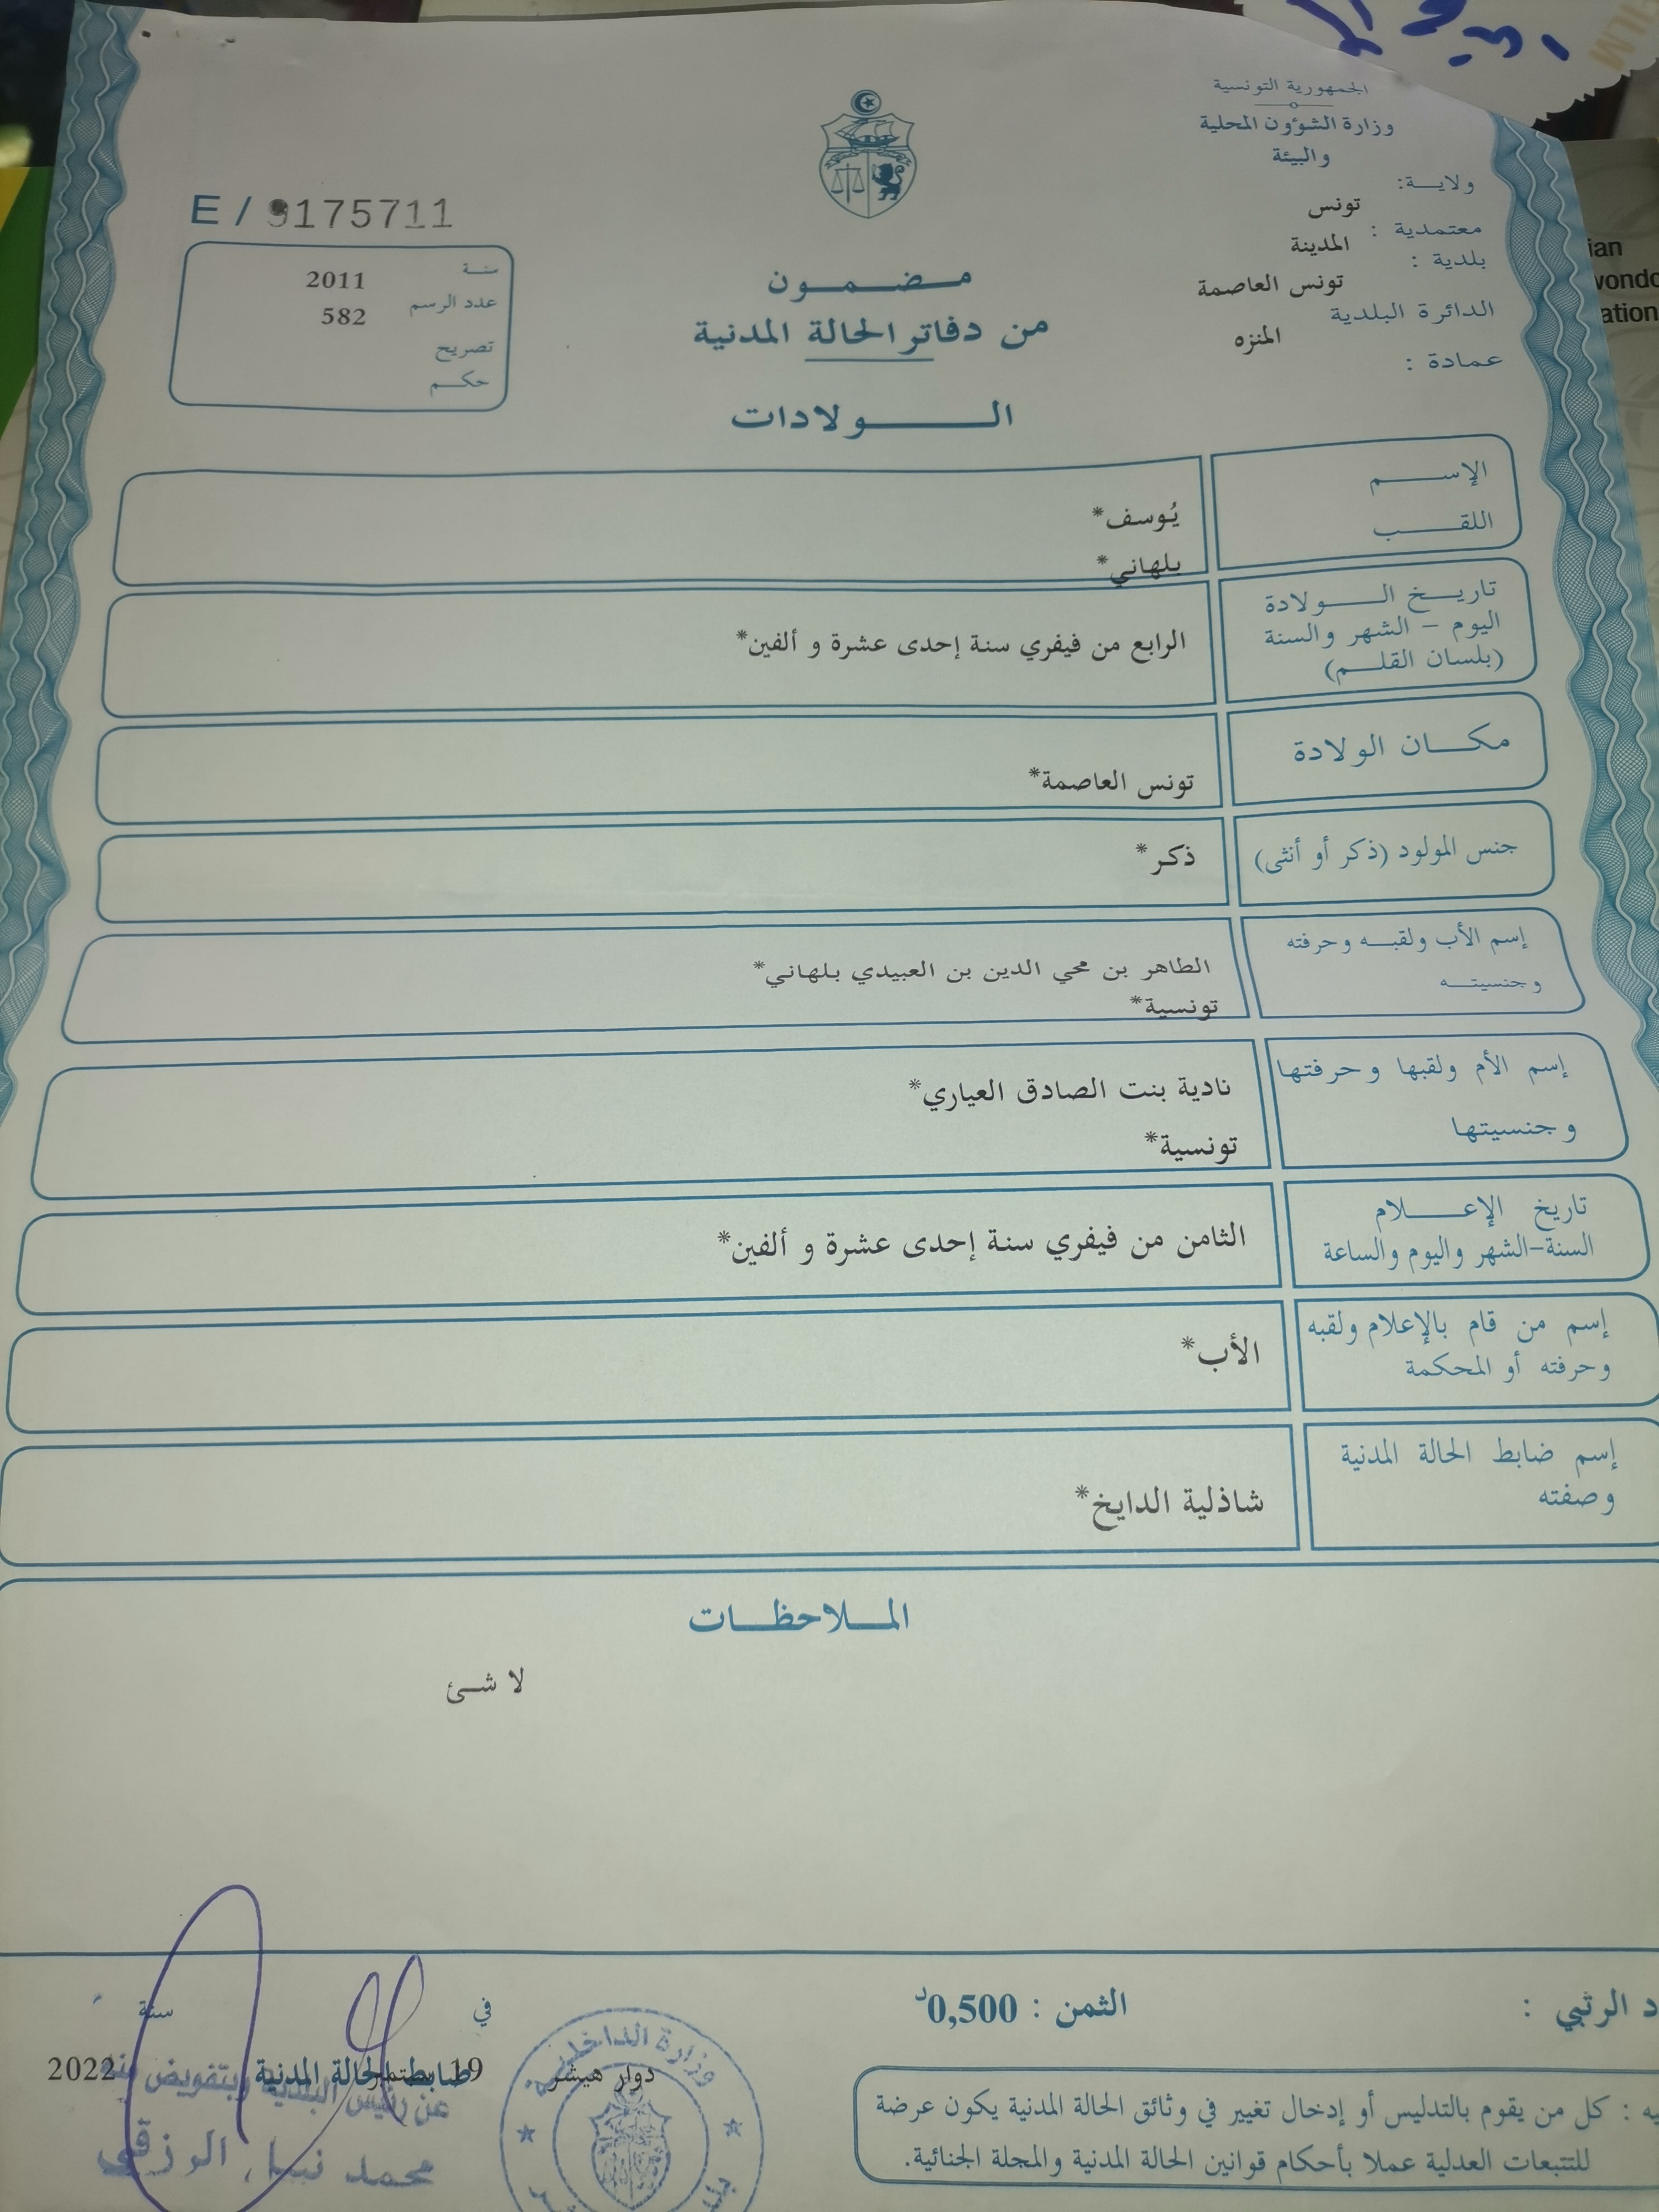 الجمهورية التونسية
وزارة الشؤون المحلية
والبيئة
ولايـــة:
تونس
معتمدية :
المدينة
بلدية :
تونس العاصمة
الدائرة البلدية
المنزه
عمادة :
E / 9175711
سنة 2011
عدد الرسم 582
تصريح
حكم
مضمون
من دفاتر الحالة المدنية
الولادات
الإسم
يُوسف*
اللقب
بلهاني*
تاريخ الولادة
اليوم - الشهر والسنة
(بلسان القلم)
الرابع من فيفري سنة إحدى عشرة و ألفين*
مكان الولادة
تونس العاصمة*
جنس المولود (ذكر أو أنثى)
ذكر*
إسم الأب ولقبه وحرفته
وجنسيته
الطاهر بن محي الدين بن العبيدي بلهاني*
تونسية*
إسم الأم ولقبها وحرفتها
وجنسيتها
نادية بنت الصادق العياري*
تونسية*
تاريخ الإعلام
السنة-الشهر واليوم والساعة
الثامن من فيفري سنة إحدى عشرة و ألفين*
إسم من قام بالإعلام ولقبه
وحرفته أو المحكمة
الأب*
إسم ضابط الحالة المدنية
وصفته
شاذلية الدايخ*
الملاحظات
لا شئ
د الرتبي :
الثمن : 0,500د
في
سنة
دوار هيشر
19
2022
ضابط الحالة المدنية
عن رئيس البلدية وبتفويض منه
محمد نبيل الرزقي
وزارة الداخلية
يه : كل من يقوم بالتدليس أو إدخال تغيير في وثائق الحالة المدنية يكون عرضة
للتتبعات العدلية عملا بأحكام قوانين الحالة المدنية والمجلة الجنائية.
ian
ation
FILM